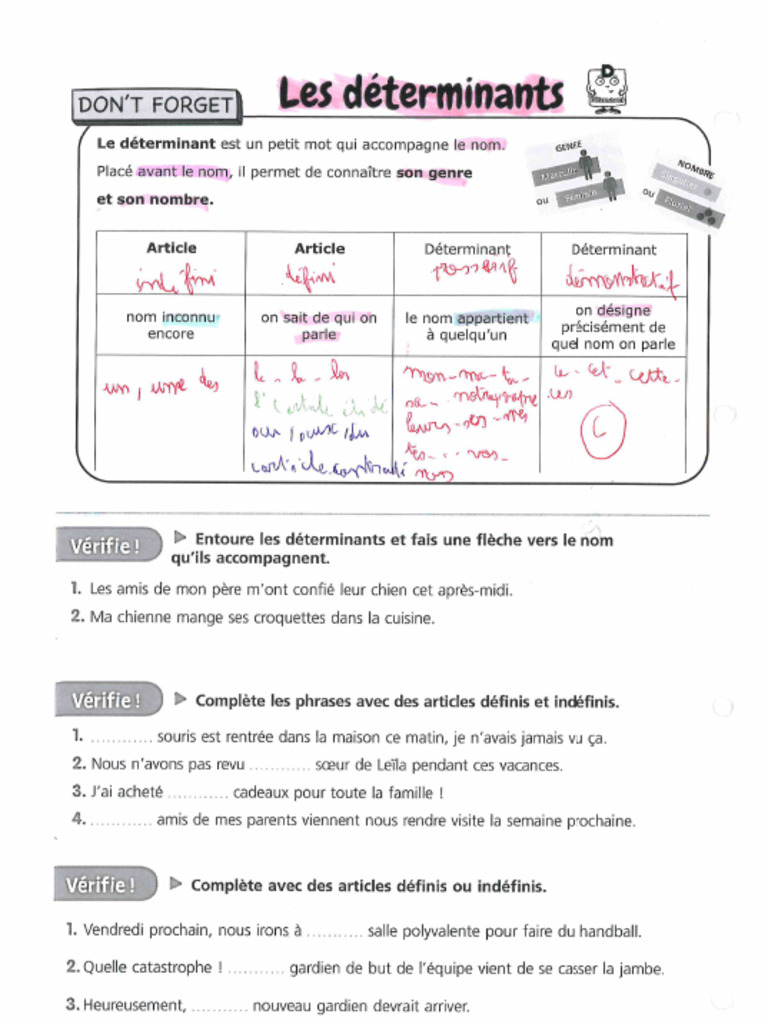 DON'T FORGET
Les déterminants
D
Le déterminant est un petit mot qui accompagne le nom.
Placé avant le nom, il permet de connaître son genre
et son nombre.
GENRE
Masculin
ou
Féminin
NOMBRE
Singulier
ou
Pluriel
Article
indéfini
Article
défini
Déterminant
possessif
Déterminant
démonstratif
nom inconnu
encore
on sait de qui on
parle
le nom appartient
à quelqu'un
on désigne
précisément de
quel nom on parle
un, une des
le - la - les
l'
au, aux, du
mon - ma - ta -
sa - notre, votre
leurs - ses - mes
tes - vos -
nos
ce - cet - cette -
ces
C
Vérifie !
Entoure les déterminants et fais une flèche vers le nom
qu'ils accompagnent.
1. Les amis de mon père m'ont confié leur chien cet après-midi.
2. Ma chienne mange ses croquettes dans la cuisine.
Vérifie !
Complète les phrases avec des articles définis et indéfinis.
1. ............ souris est rentrée dans la maison ce matin, je n'avais jamais vu ça.
2. Nous n'avons pas revu ............ sœur de Leïla pendant ces vacances.
3. J'ai acheté ............ cadeaux pour toute la famille !
4. ............ amis de mes parents viennent nous rendre visite la semaine prochaine.
Vérifie !
Complète avec des articles définis ou indéfinis.
1. Vendredi prochain, nous irons à ........... salle polyvalente pour faire du handball.
2. Quelle catastrophe ! ........... gardien de but de l'équipe vient de se casser la jambe.
3. Heureusement, ........... nouveau gardien devrait arriver.